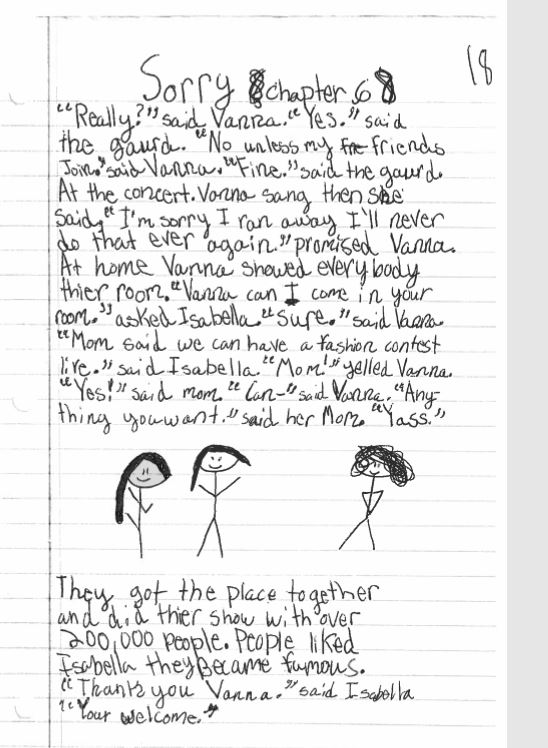 18
Sorry Chapter 6
"Really?" said Vanna. "Yes." said
the gaurd. "No unless my friends
Join." said Vanna. "Fine." said the gaurd.
At the concert. Vanna sang then she
said, "I'm sorry I ran away I'll never
do that ever again." promised Vanna.
At home Vanna showed everybody
thier room. "Vanna can I come in your
room." asked Isabella. "Sure." said Vanna.
"Mom said we can have a fashion contest
live." said Isabella. "Mom!" yelled Vanna.
"Yes!" said mom. "Can-" said Vanna. "Any-
thing you want." said her Mom. "Yass."
They got the place together
and did thier show with over
200,000 people. People liked
Isabella they became fumous.
"Thanks you Vanna." said Isabella
"Your welcome."